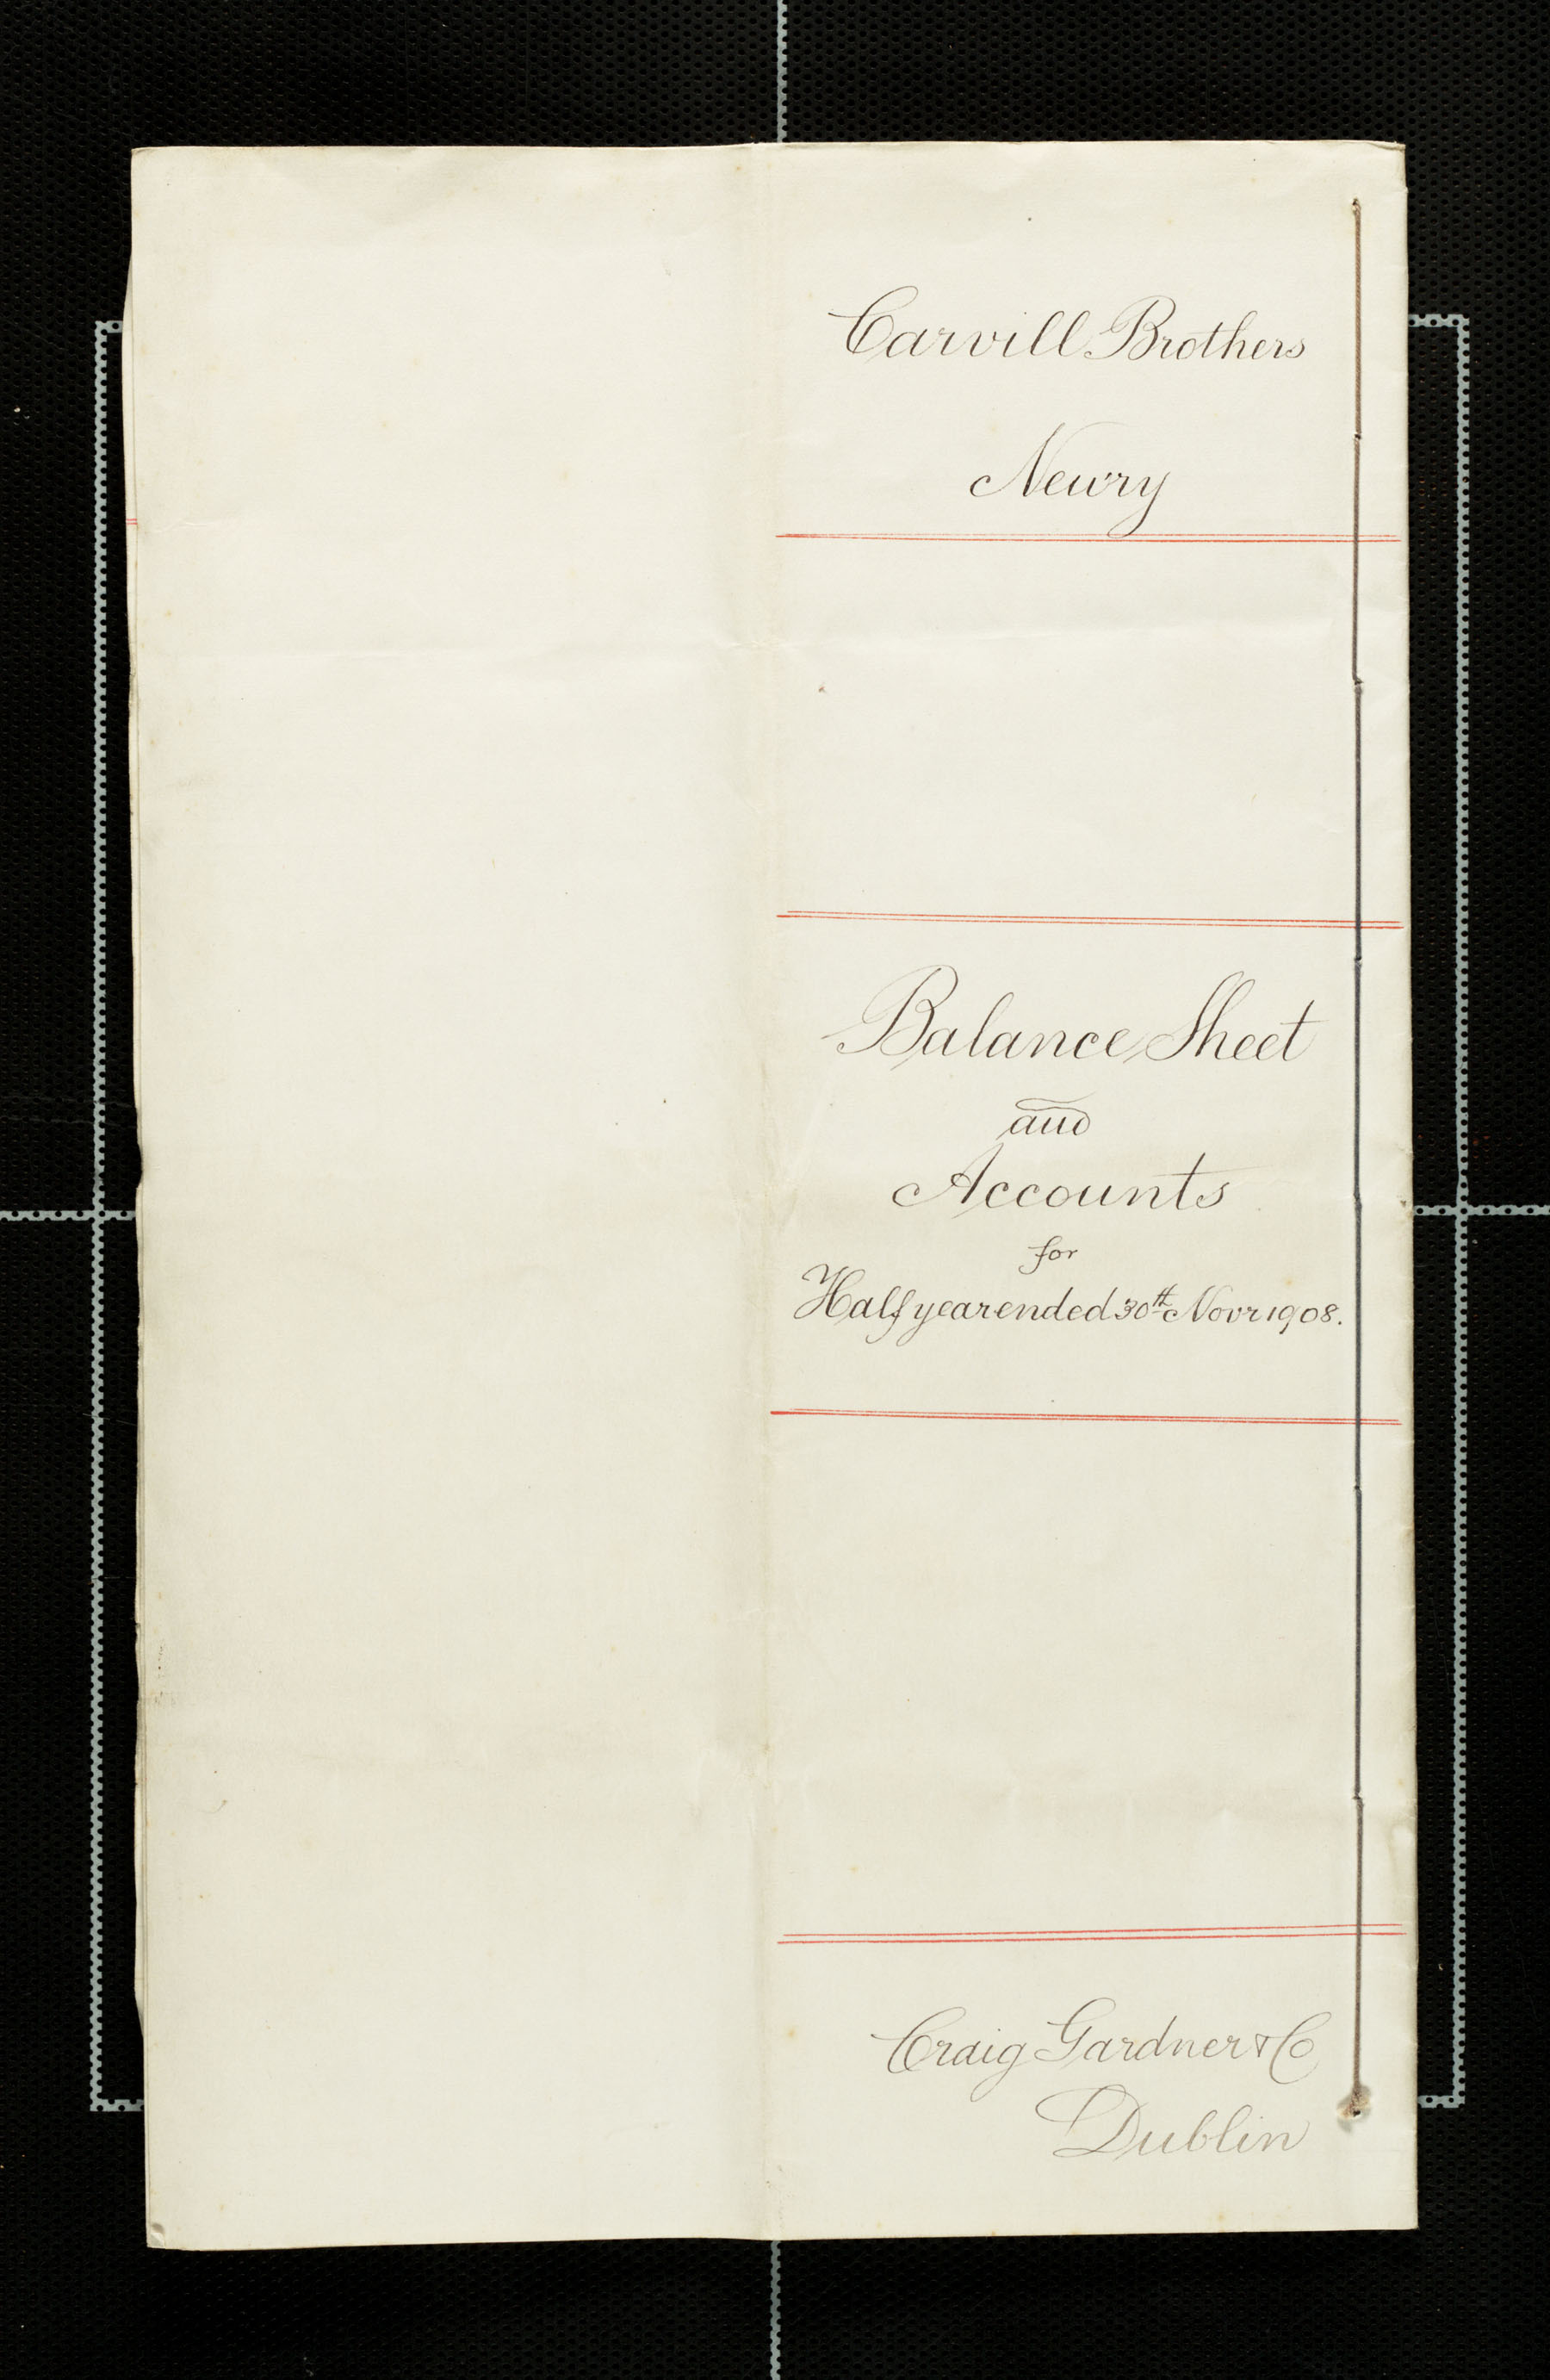 Carvill Brothers
Newry
Balance Sheet
and
Accounts
for
Half year ended 30th Novr 1908.
Craig Gardner & Co
Dublin